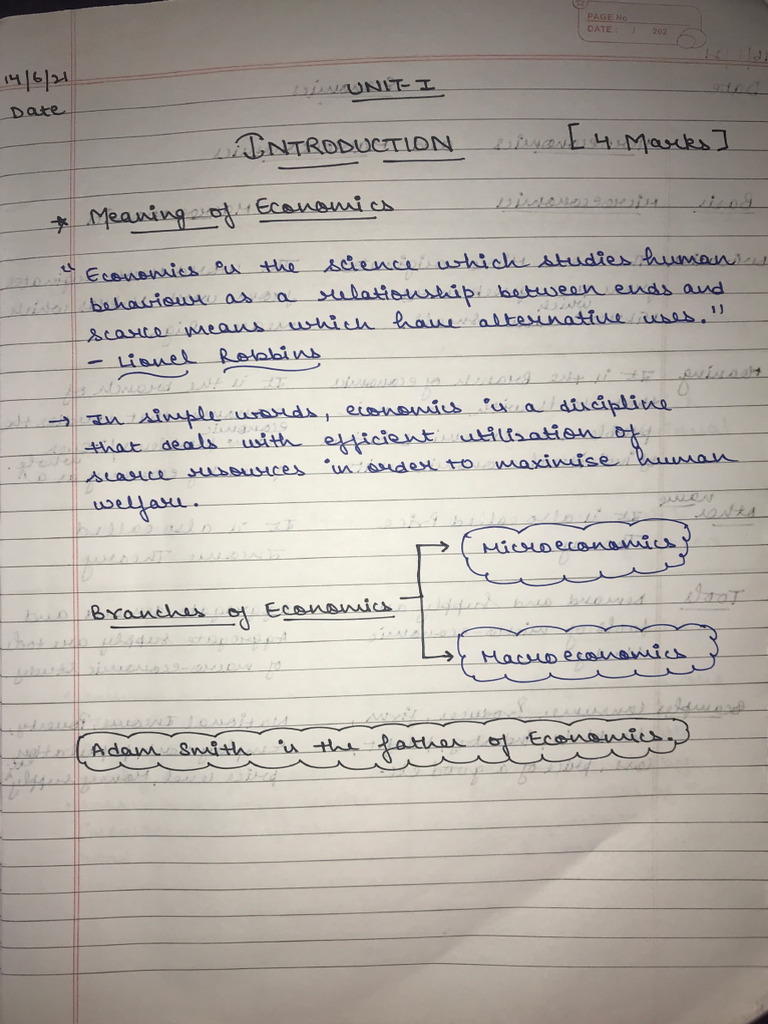 PAGE No
DATE: / 202
14/6/21
Date
UNIT-I
INTRODUCTION [4 Marks]
* Meaning of Economics
"Economics is the science which studies human
behaviour as a relationship between ends and
scarce means which have alternative uses."
- Lionel Robbins
→ In simple words, economics is a discipline
that deals with efficient utilisation of
scarce resources in order to maximise human
welfare.
Microeconomics
Branches of Economics
Macroeconomics
Adam Smith is the father of Economics.